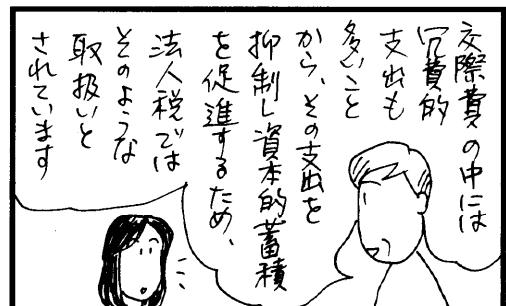 交際費の中には
冗費的
支出も
多いこと
から、その支出を
抑制し資本的蓄積
を促進するため、
法人税では
そのような
取扱いと
されています